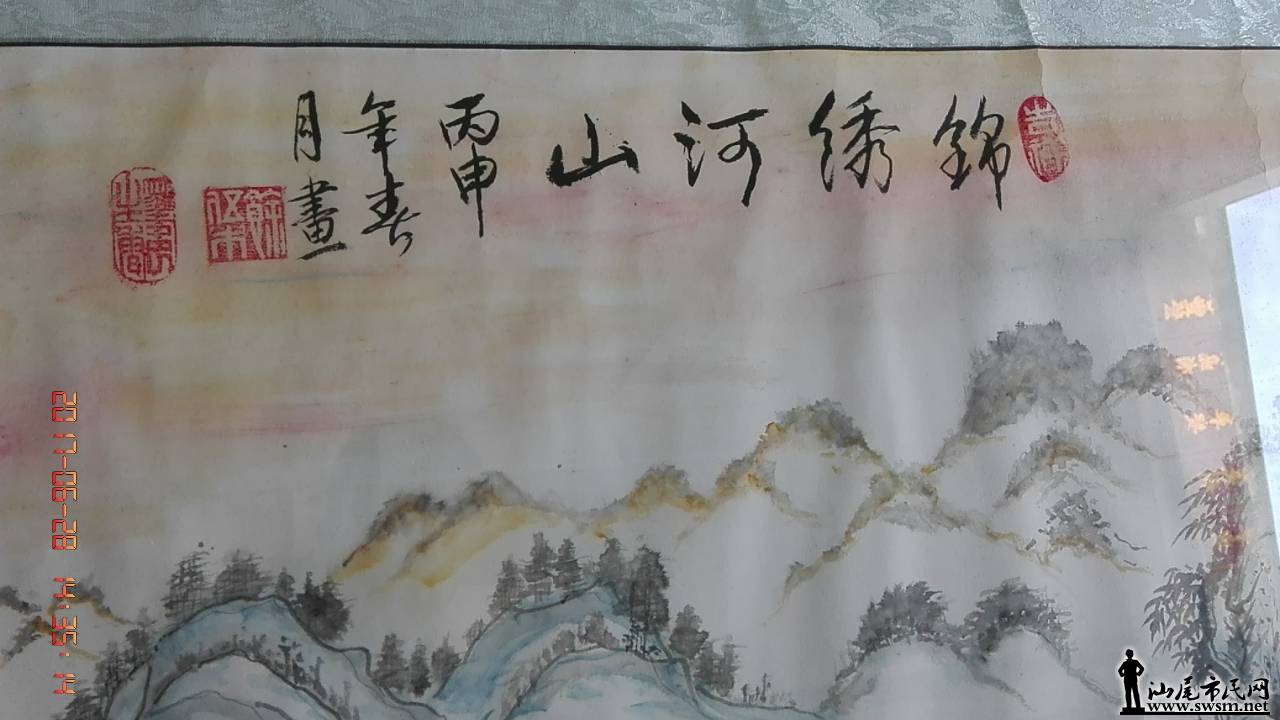 錦绣河山
丙申
年春
月畫
2017-06-28 14:35:14
汕尾市民网
www.swsm.net